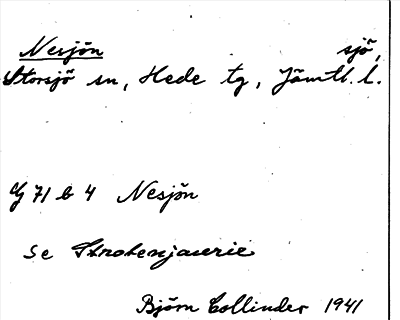 Nesjön sjö,
Storsjö sn, Hede tg, Jämtl. l.
71 b 4 Nesjön
se
Björn Collinder 1941